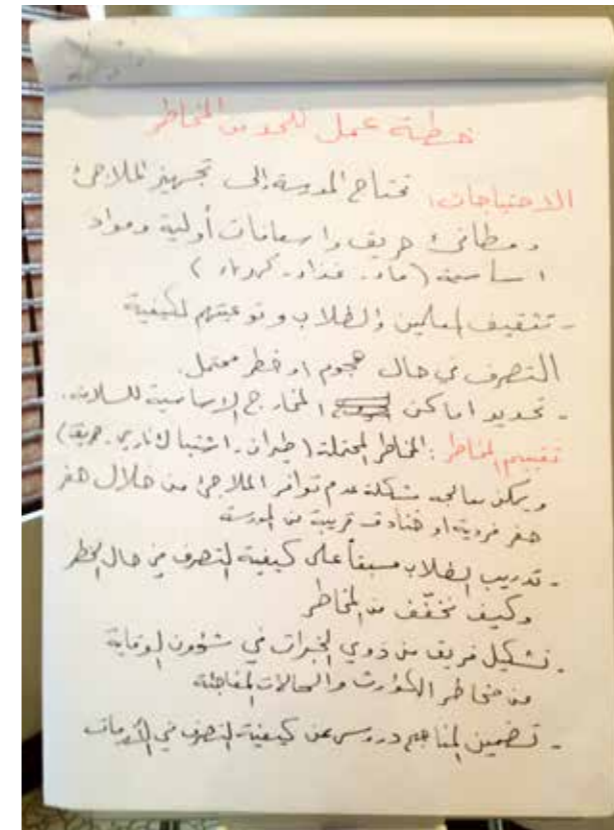 خطة عمل للحد من المخاطر
الاحتياجات: تحتاج المدرسة إلى تجهيز الملاجئ
ومطافئ حريق واسعافات أولية ومواد
اساسية (ماء - غذاء - كهرباء)
- تثقيف المعلمين والطلاب وتوعيتهم لكيفية
التصرف في حال هجوم او خطر محتمل.
- تحديد اماكن المخارج الاساسية للسلامة.
تقييم المخاطر: المخاطر المحتملة (طيران - اشتباك ناري - حريق)
ويمكن معالجة مشكلة عدم توافر الملاجئ من خلال حفر
حفر فردية او خنادق قريبة من المدرسة
- تدريب الطلاب مسبقاً على كيفية التصرف في حال الخطر
وكيف نخفّف من المخاطر
- تشكيل فريق من ذوي الخبرات في شؤون الوقاية
من مخاطر الكوارث والحالات المفاجئة
- تضمين المناهج دروس عن كيفية التصرف في الأزمات